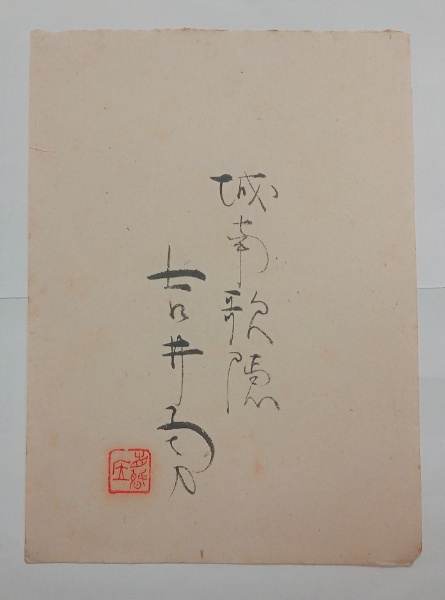 城南歌隠
吉井勇